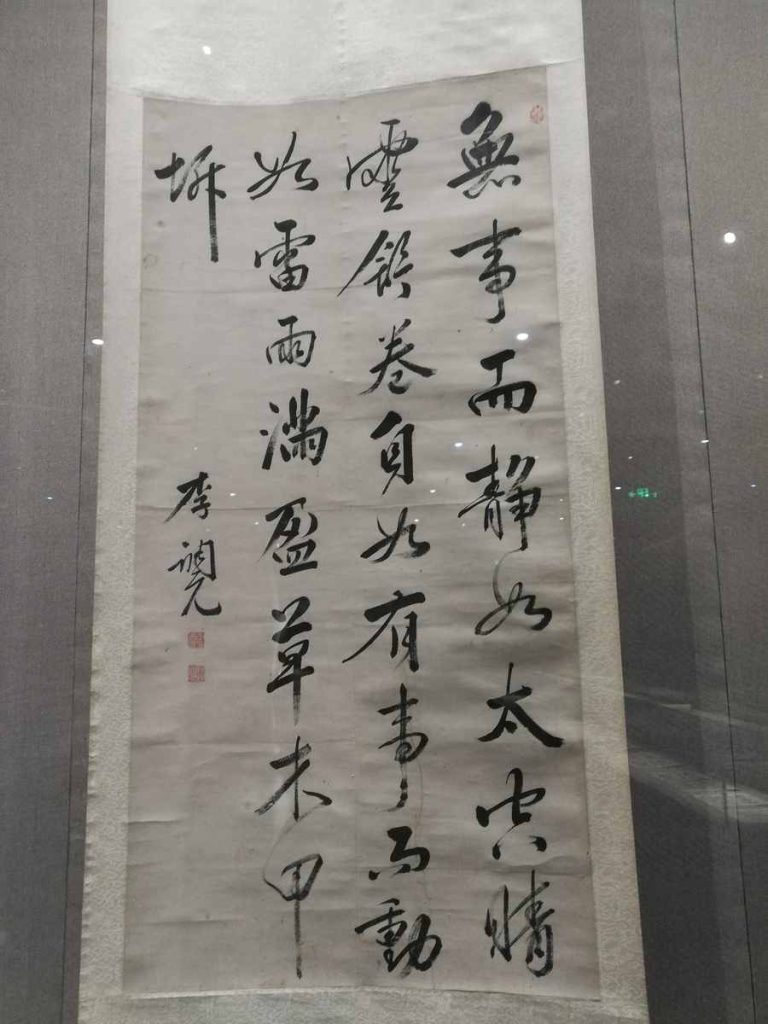 無事而靜如太空晴
雲舒卷自如有事而動
如雷雨滿盈草木甲
坼
李調元